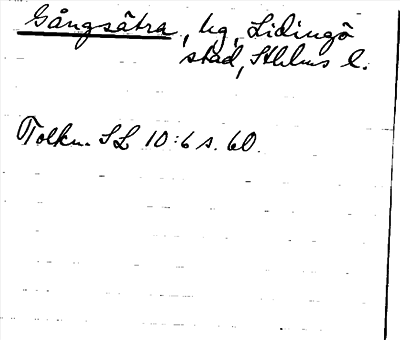 Gångsätra, hg, Lidingö
stad, Sthlms l.
Tolkn. SL 10:6 s. 60.